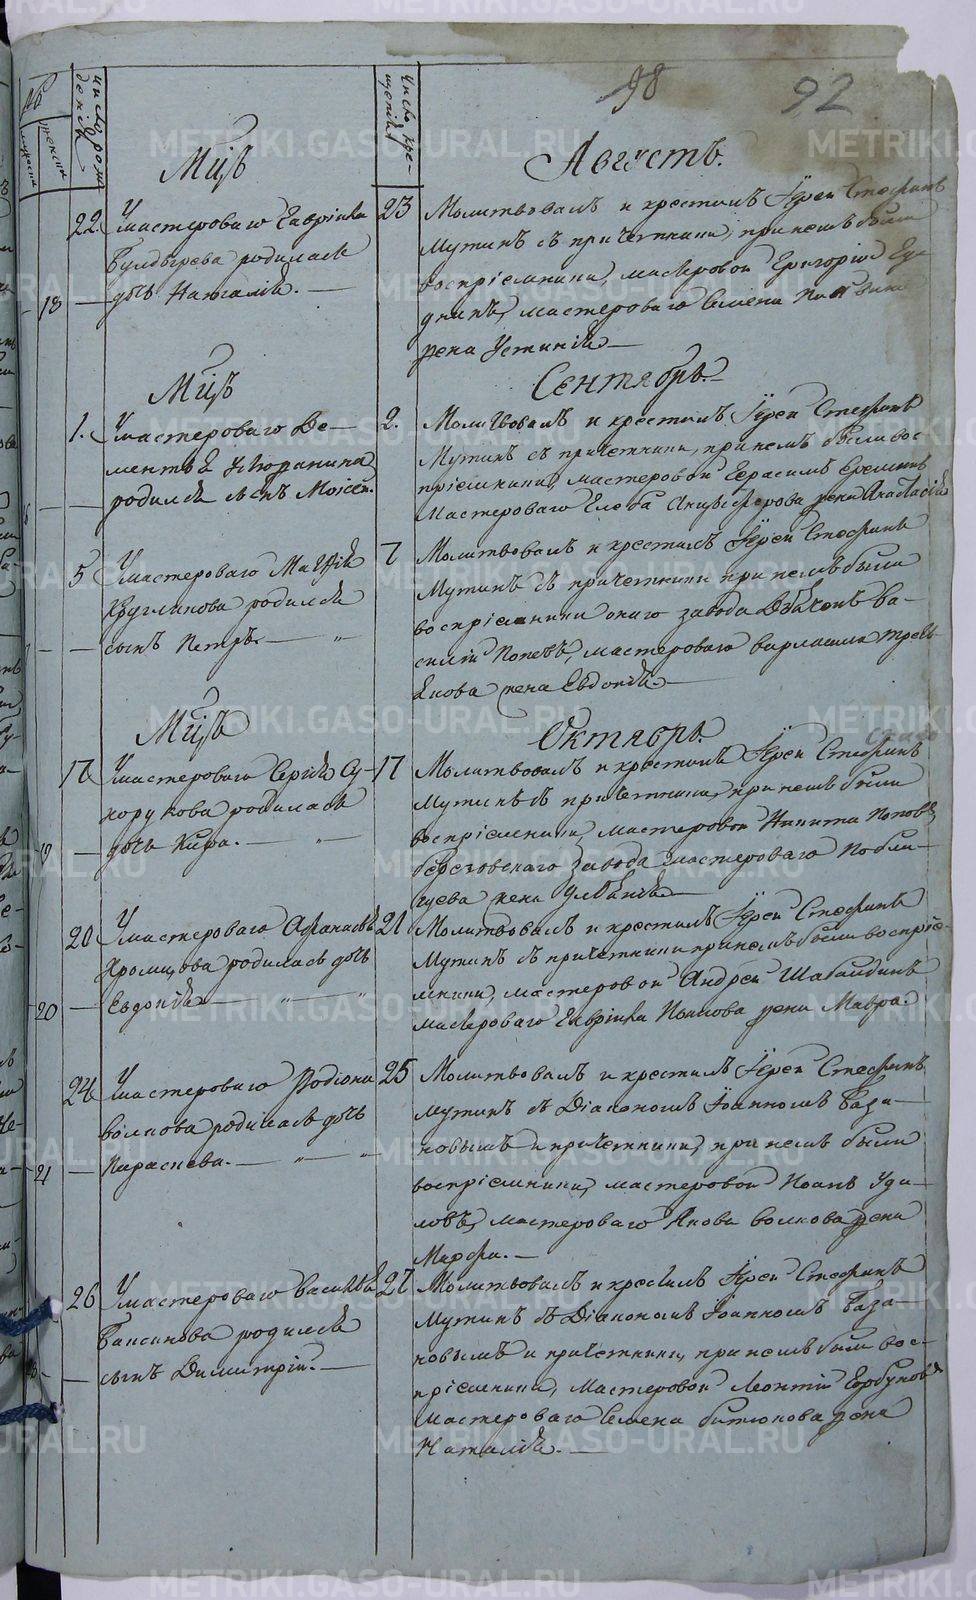 98 92
число рож
денія
число кре-
щенія
Мцъ Августъ.
22. Умастероваго Гаврiила
родилась
18 дочь Наталiя.
23 Молитвовалъ и крестилъ Iерей Стефанъ
Мутинъ съ причетники, при немъ были
воспрiемники, мастеровой Григорiй
мастероваго Семена
жена Устинiя
Мцъ Сентябрь.
1. Умастероваго Де-
ментья Устюжанина
родился сынъ Моисей.
2. Молитвовалъ и крестилъ Iерей Стефанъ
Мутинъ съ причетники, при немъ были вос
прiемники, мастеровой Герасимъ Еремѣинъ
мастероваго Глеба Анциферова жена Анастасiя
5 Умастероваго Матѳiя
Кругликова родился
сынъ Петръ.
7 Молитвовалъ и крестилъ Iерей Стефанъ
Мутинъ съ причетники при немъ были
воспрiемники онаго завода Дьяконъ Ва-
силiй Поповъ, мастероваго Варлаама
жена Евдокiя.
Мцъ Октябрь.
17 Умастероваго Сергiя Су-
хорукова родилась
19 дочь Кира.
17 Молитвовалъ и крестилъ Iерей Стефанъ
Мутинъ съ причетники, при немъ были
воспрiемники, мастеровой Никита Поповъ,
березовскаго завода мастероваго
жена Улiянiя
20 Умастероваго Афанасья
Хромцова родилась дочь
20 Евдокiя
21 Молитвовалъ и крестилъ Iерей Стефанъ
Мутинъ съ причетники при немъ были воспрiе-
мники, мастеровой Андрей Шабалдинъ
мастероваго Гаврiила жена Мавра.
24 Умастероваго Родiона
Волкова родилась дочь
21 Параскева.
25 Молитвовалъ и крестилъ Iерей Стефанъ
Мутинъ съ Дiакономъ Iоанномъ База-
новымъ и причетники, при немъ были
воспрiемники, мастеровой Иоанъ Уда-
ловъ, мастероваго Якова Волкова жена
Марфа.
26 Умастероваго Василья
родился
сынъ Димитрiй.
27 Молитвовалъ и крестилъ Iерей Стефанъ
Мутинъ съ Дiакономъ Iоанномъ База-
новымъ и причетники, при немъ были вос-
прiемники, мастеровой Леонтiй Горбуновъ
мастероваго Семена Битюкова жена
Наталiя.
METRIKI.GASO-URAL.RU